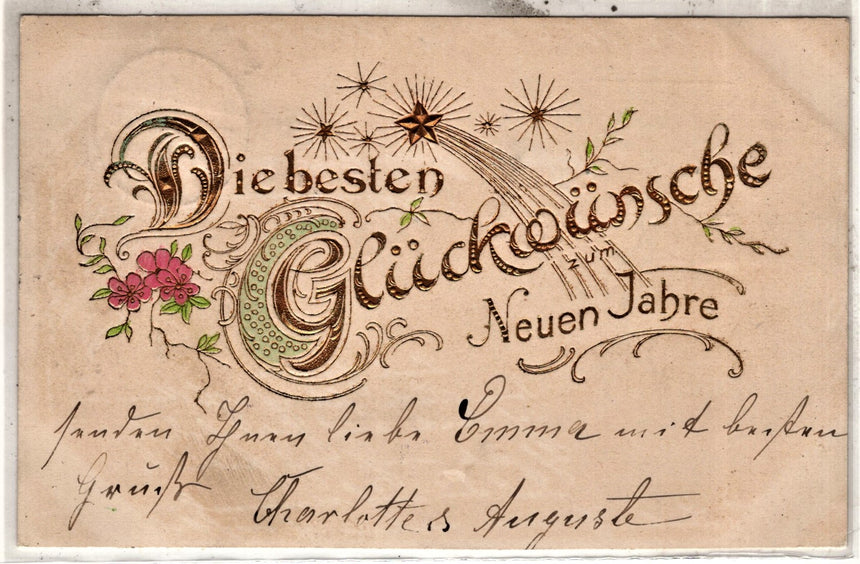 Die besten
Glückwünsche
zum
Neuen Jahre
senden Ihnen liebe Emma mit besten
Gruß
Charlotte & Auguste